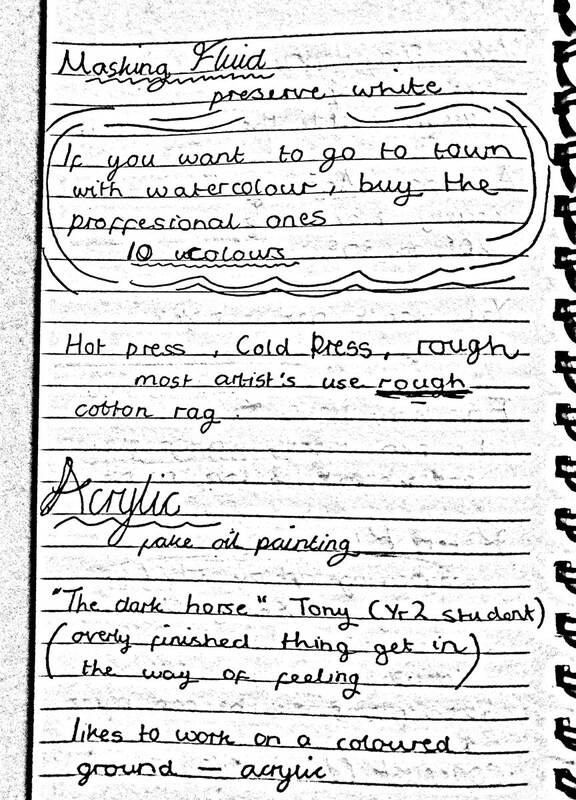 Masking Fluid
preserve white
If you want to go to town
with watercolour, buy the
proffesional ones
10 colours
Hot press, Cold Press, rough
most artist's use rough
cotton rag
Acrylic
fake oil painting
"The dark horse" Tony (Yr2 student)
(overly finished thing get in
the way of feeling)
likes to work on a coloured
ground — acrylic